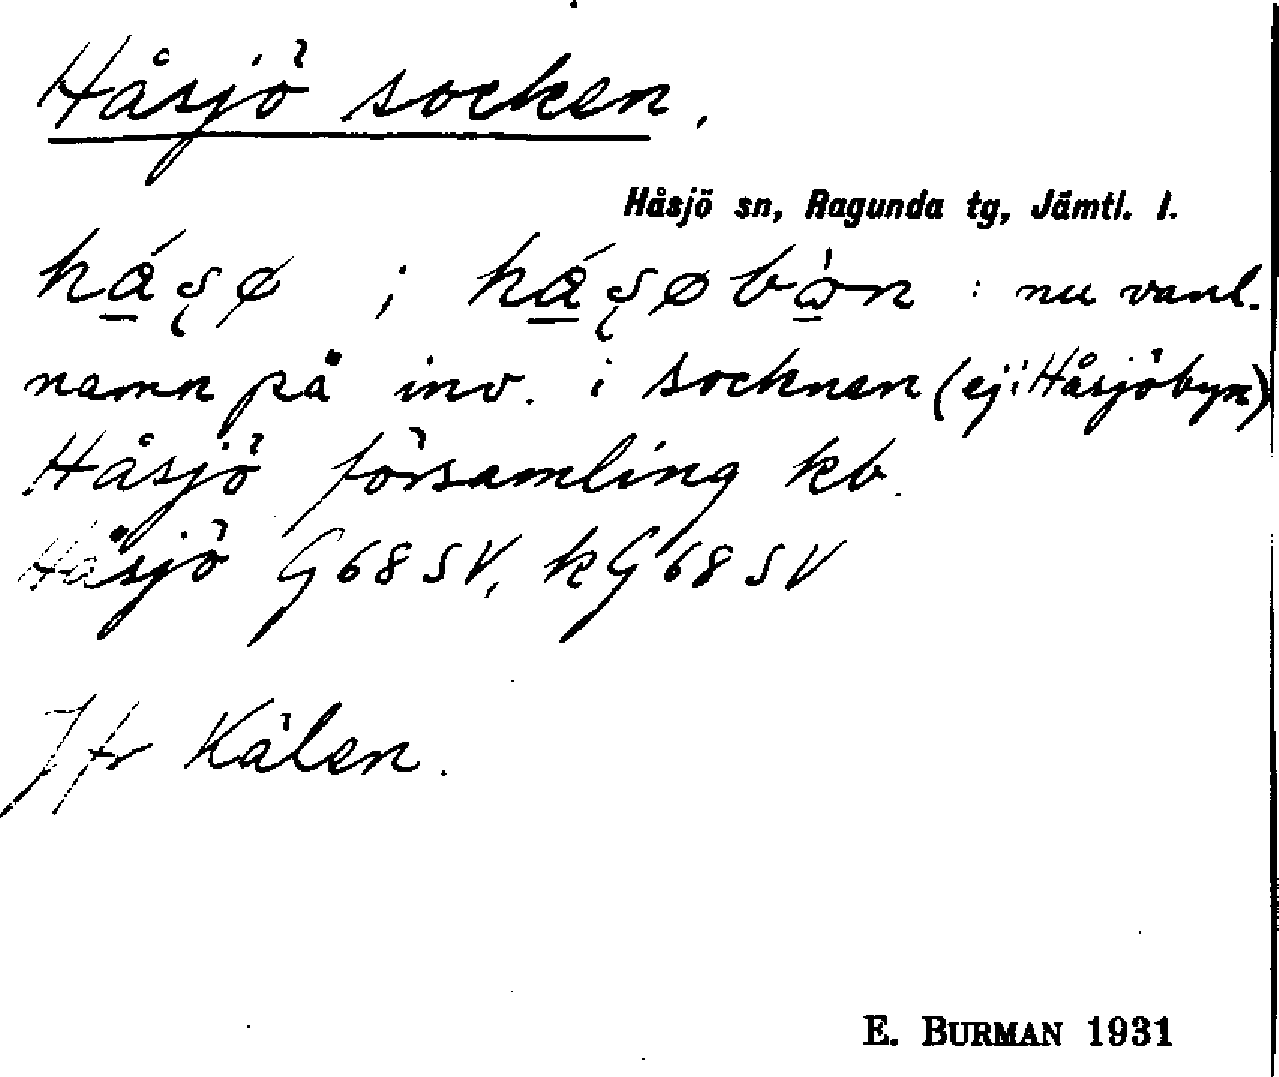 Håsjö socken.
Håsjö sn, Ragunda tg, Jämtl. l.
: nu vanl.
namn på inv. i socknen (ej i Håsjöbyn)
Håsjö församling kb.
Håsjö G 68 SV, kG 68 SV
Jfr Kälen.
E. BURMAN 1931